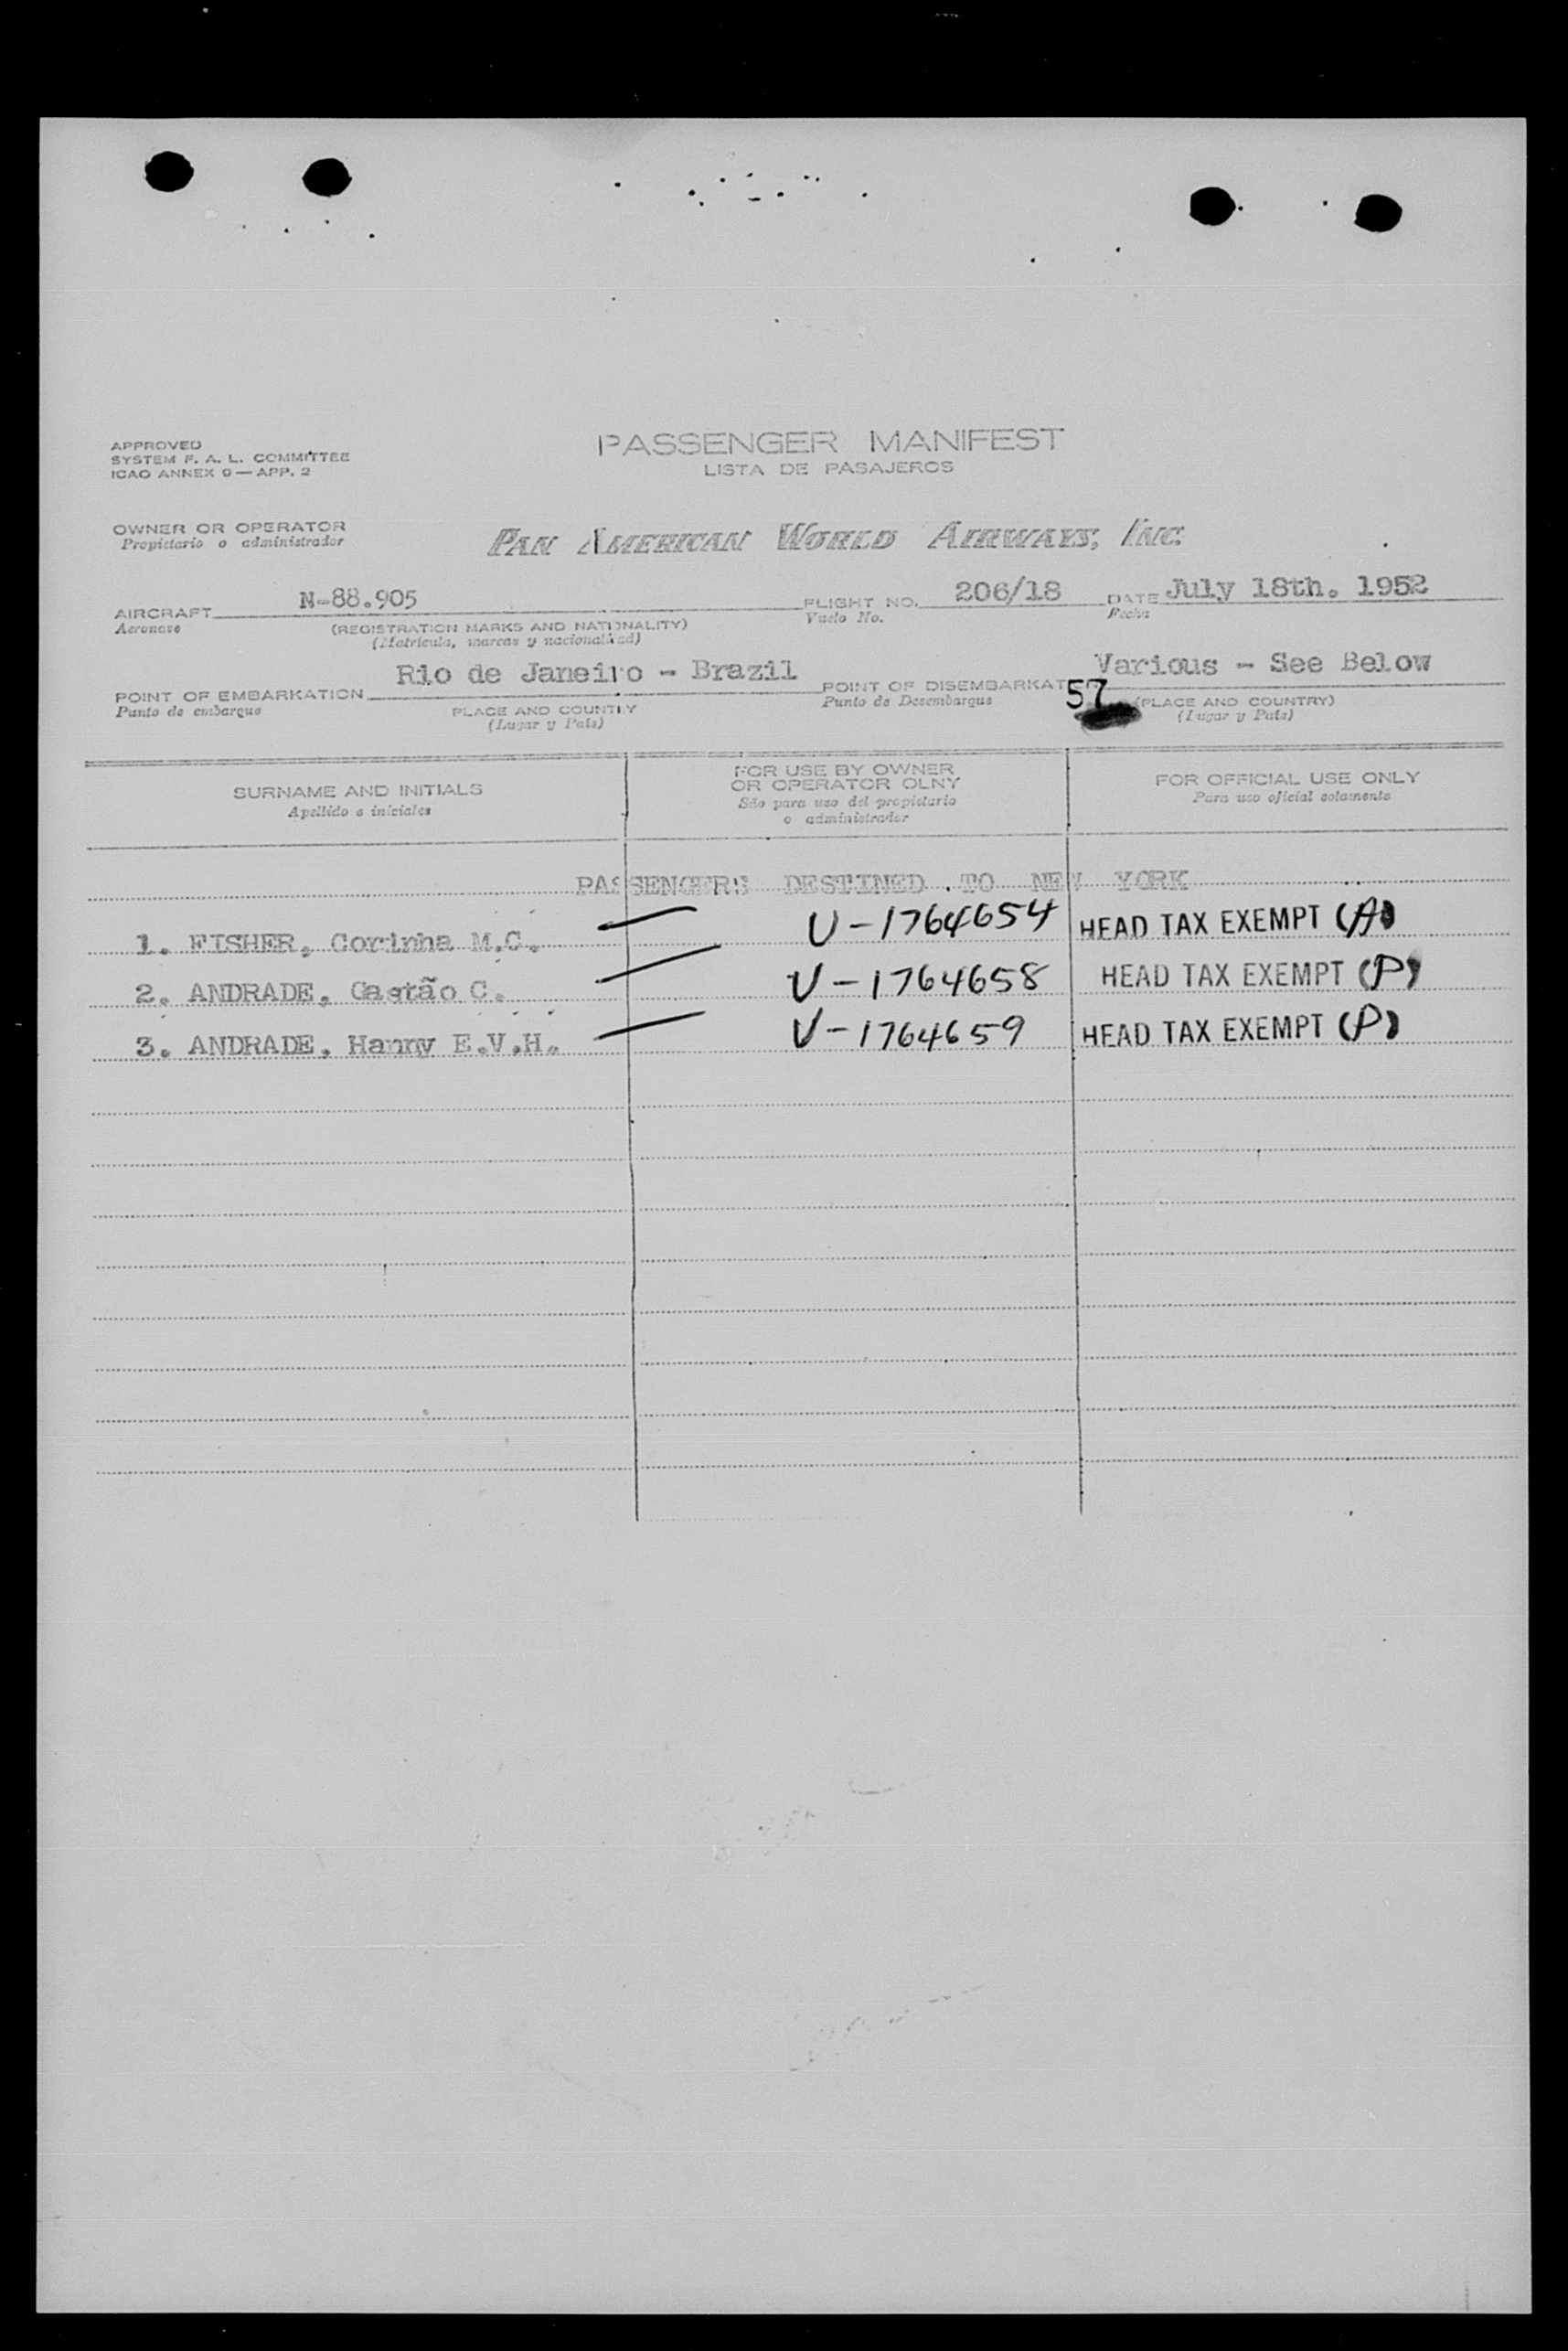 APPROVED
SYSTEM F. A. L. COMMITTEE
ICAO ANNEX 9 — APP. 2
PASSENGER MANIFEST
LISTA DE PASAJEROS
OWNER OR OPERATOR
Propietario o administrador
PAN AMERICAN WORLD AIRWAYS, INC.
AIRCRAFT N-88.905 FLIGHT NO. 206/18 DATE July 18th. 1952
Aeronave (REGISTRATION MARKS AND NATIONALITY) Vuelo No. Fecha
(Matrícula, marcas y nacionalidad)
POINT OF EMBARKATION Rio de Janeiro - Brazil POINT OF DISEMBARKAT 57 Various - See Below
Punto de embarque PLACE AND COUNTRY Punto de Desembarque (PLACE AND COUNTRY)
(Lugar y País) (Lugar y País)
SURNAME AND INITIALS
Apellido e iniciales
FOR USE BY OWNER
OR OPERATOR OLNY
Sólo para uso del propietario
o administrador
FOR OFFICIAL USE ONLY
Para uso oficial solamente
PASSENGERS DESTINED TO NEW YORK
1. FISHER, Corinha M.C. V-1764654 HEAD TAX EXEMPT (A)
2. ANDRADE, Gastão C. V-1764658 HEAD TAX EXEMPT (P)
3. ANDRADE, Hanny E.V.H. V-1764659 HEAD TAX EXEMPT (P)